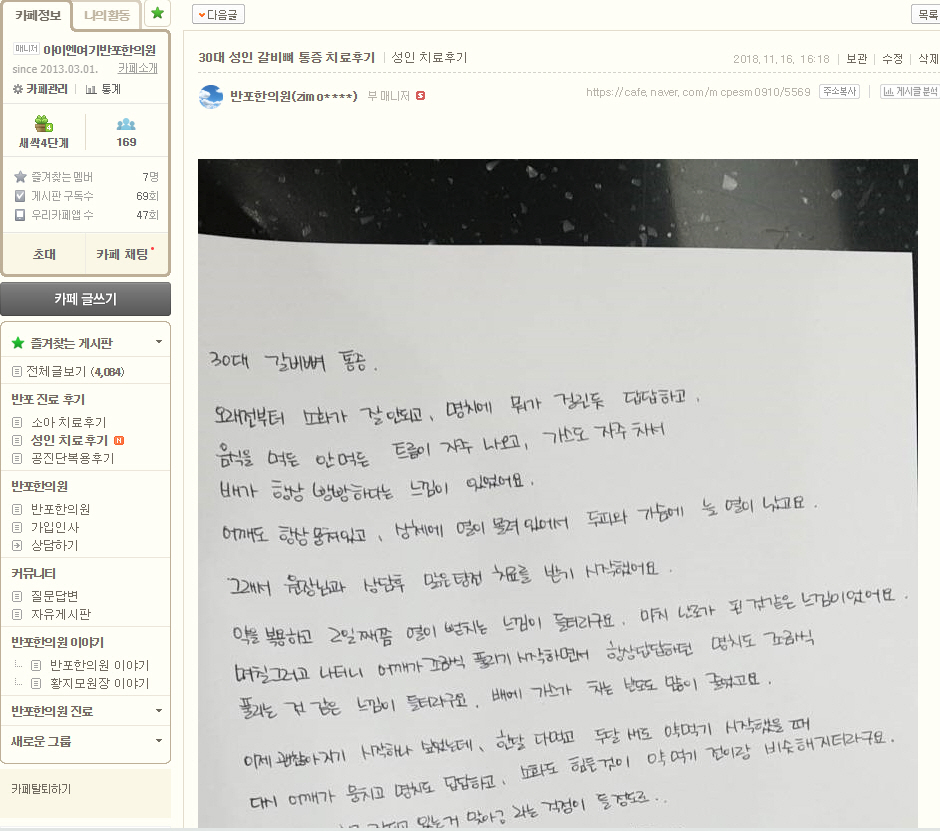 카페정보
나의활동
다음글
목록
매니저 아이엔여기반포한의원
since 2013.03.01.
카페소개
카페관리
통계
새싹4단계
169
즐겨찾는 멤버 7명
게시판 구독수 69회
우리카페앱 수 47회
초대
카페 채팅
카페 글쓰기
즐겨찾는 게시판
전체글보기 (4,084)
반포 진료 후기
소아 치료후기
성인 치료후기 N
공진단복용후기
반포한의원
반포한의원
가입인사
상담하기
커뮤니티
질문답변
자유게시판
반포한의원 이야기
반포한의원 이야기
황지모원장 이야기
반포한의원 진료
새로운 그룹
카페탈퇴하기
30대 성인 갈비뼈 통증 치료후기 | 성인 치료후기
2018.11.16. 16:18 | 보관 | 수정 | 삭제
반포한의원(zimo****) 부매니저
https://cafe.naver.com/mcpesm0910/5569 주소복사 | 게시글 분석
30대 갈비뼈 통증.
오래전부터 소화가 잘 안되고, 명치에 뭐가 걸린듯 답답하고,
음식을 먹든 안먹든 트름이 자주 나오고, 가스도 자주 차서
배가 항상 빵빵하다는 느낌이 있었어요.
어깨도 항상 뭉쳐있고, 상체에 열이 몰려 있어서 두피와 가슴에 늘 열이 났고요.
그래서 원장님과 상담후 맞은탕전 치료를 받기 시작했어요.
약을 복용하고 2일째쯤 열이 뻗치는 느낌이 들더라구요. 마치 난로가 된 것같은 느낌이었어요.
며칠그러고 나더니 어깨가 조금씩 풀리기 시작하면서 항상답답하던 명치도 조금씩
풀리는 것 같은 느낌이 들더라구요. 배에 가스가 차는 빈도도 많이 줄었고요.
이제 괜찮아지기 시작하나 싶었는데, 한달 다먹고 두달 째도 약먹기 시작했을 때
다시 어깨가 뭉치고 명치도 답답하고, 소화도 힘든것이 약 먹기 전이랑 비슷해지더라구요.
있는거 맞아? 라는 걱정이 들정도로..